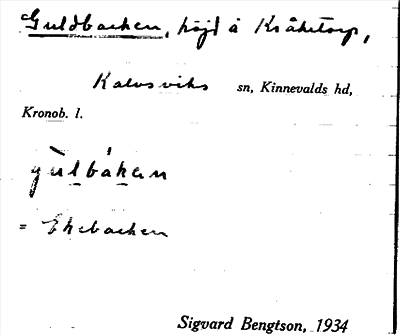 Guldbacken, höjd å Kråketorp,
Kalvsviks sn, Kinnevalds hd,
Kronob. l.
gùlbákan
= Ekebacken
Sigvard Bengtson, 1934